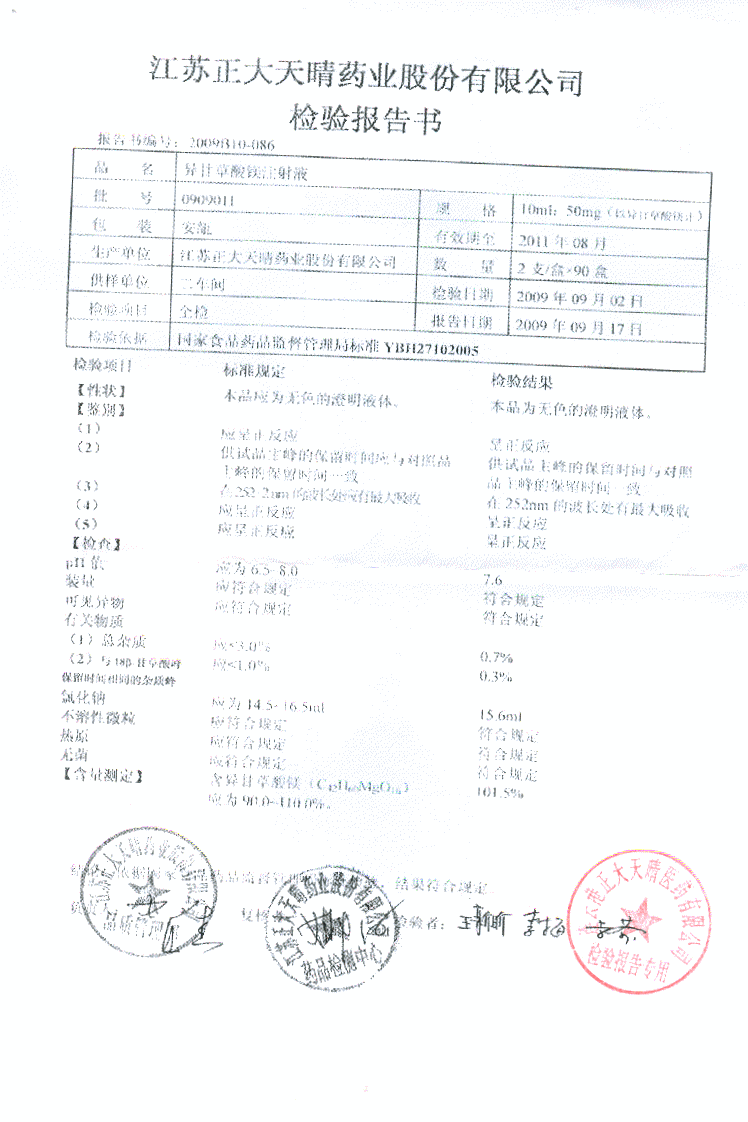 江苏正大天晴药业股份有限公司
检验报告书
报告书编号：2009B10-086
品 名 异甘草酸镁注射液
批 号 0909011 规 格 10ml：50mg（以异甘草酸镁计）
包 装 安瓿 有效期至 2011年08月
生产单位 江苏正大天晴药业股份有限公司 数 量 2支/盒×90盒
供样单位 二车间 检验日期 2009年09月02日
检验项目 全检 报告日期 2009年09月17日
检验依据 国家食品药品监督管理局标准YBH27102005
检验项目 标准规定 检验结果
【性状】 本品应为无色的澄明液体。 本品为无色的澄明液体。
【鉴别】
（1） 应呈正反应 呈正反应
（2） 供试品主峰的保留时间应与对照品 供试品主峰的保留时间与对照
主峰的保留时间一致 品主峰的保留时间一致
（3） 在252±2nm的波长处应有最大吸收 在252nm的波长处有最大吸收
（4） 应呈正反应 呈正反应
（5） 应呈正反应 呈正反应
【检查】
pH值 应为6.5~8.0 7.6
装量 应符合规定 符合规定
可见异物 应符合规定 符合规定
有关物质
（1）总杂质 应<3.0% 0.7%
（2）与18β-甘草酸峰 应<1.0% 0.3%
保留时间相同的杂质峰
氯化钠 应为14.5~16.5ml 15.6ml
不溶性微粒 应符合规定 符合规定
热原 应符合规定 符合规定
无菌 应符合规定 符合规定
【含量测定】 含异甘草酸镁 101.5%
应为90.0~110.0%。
依据国家 药品监督管理 结果符合规定
复核 检验者：
江苏正大天晴药业股份有限公司
品质管理
江苏正大天晴药业股份有限公司
药品检测中心
正大天晴医药有限公司
检验报告专用